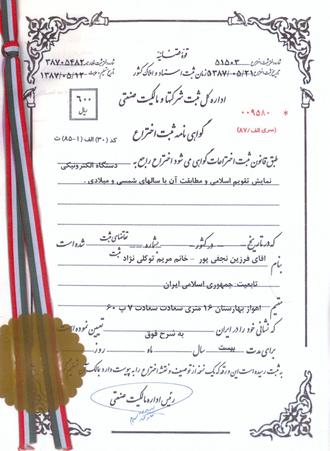 قوه قضائیه
۵۱۵۰۳
۳۸۷۰۵۴۸۲
سازمان ثبت اسناد و املاک کشور
۱۳۸۷/۰۵/۲۱
۱۳۸۷/۰۵/۱۲
اداره کل ثبت شرکتها و مالکیت صنعتی
۶۰۰
ریال
۰۰۹۵۸۰ *
(سری الف/۸۷)
گواهی نامه ثبت اختراع
کد (۳۰) الف (۱-۸۵) ث
طبق قانون ثبت اختراعات گواهی می شود اختراع راجع به دستگاه الکترونیکی
نمایش تقویم اسلامی و مطابقت آن با سالهای شمسی و میلادی .
که در تاریخ در کشور شماره تقاضای ثبت شده است
ثبت
بنام آقای فرزین نجفی پور - خانم مریم توکلی نژاد
تابعیت: جمهوری اسلامی ایران
مقیم اهواز بهارستان ۱۶ متری سعادت سعادت ۷ پ ۶۰
که نشانی خود را در ایران به شرح فوق تعیین نموده است
برای مدت بیست سال ماه روز
به ثبت رسیده است این ورقه که یک نسخه از توصیف و نقشه اختراع را به پیوست دارد
رئیس اداره مالکیت صنعتی